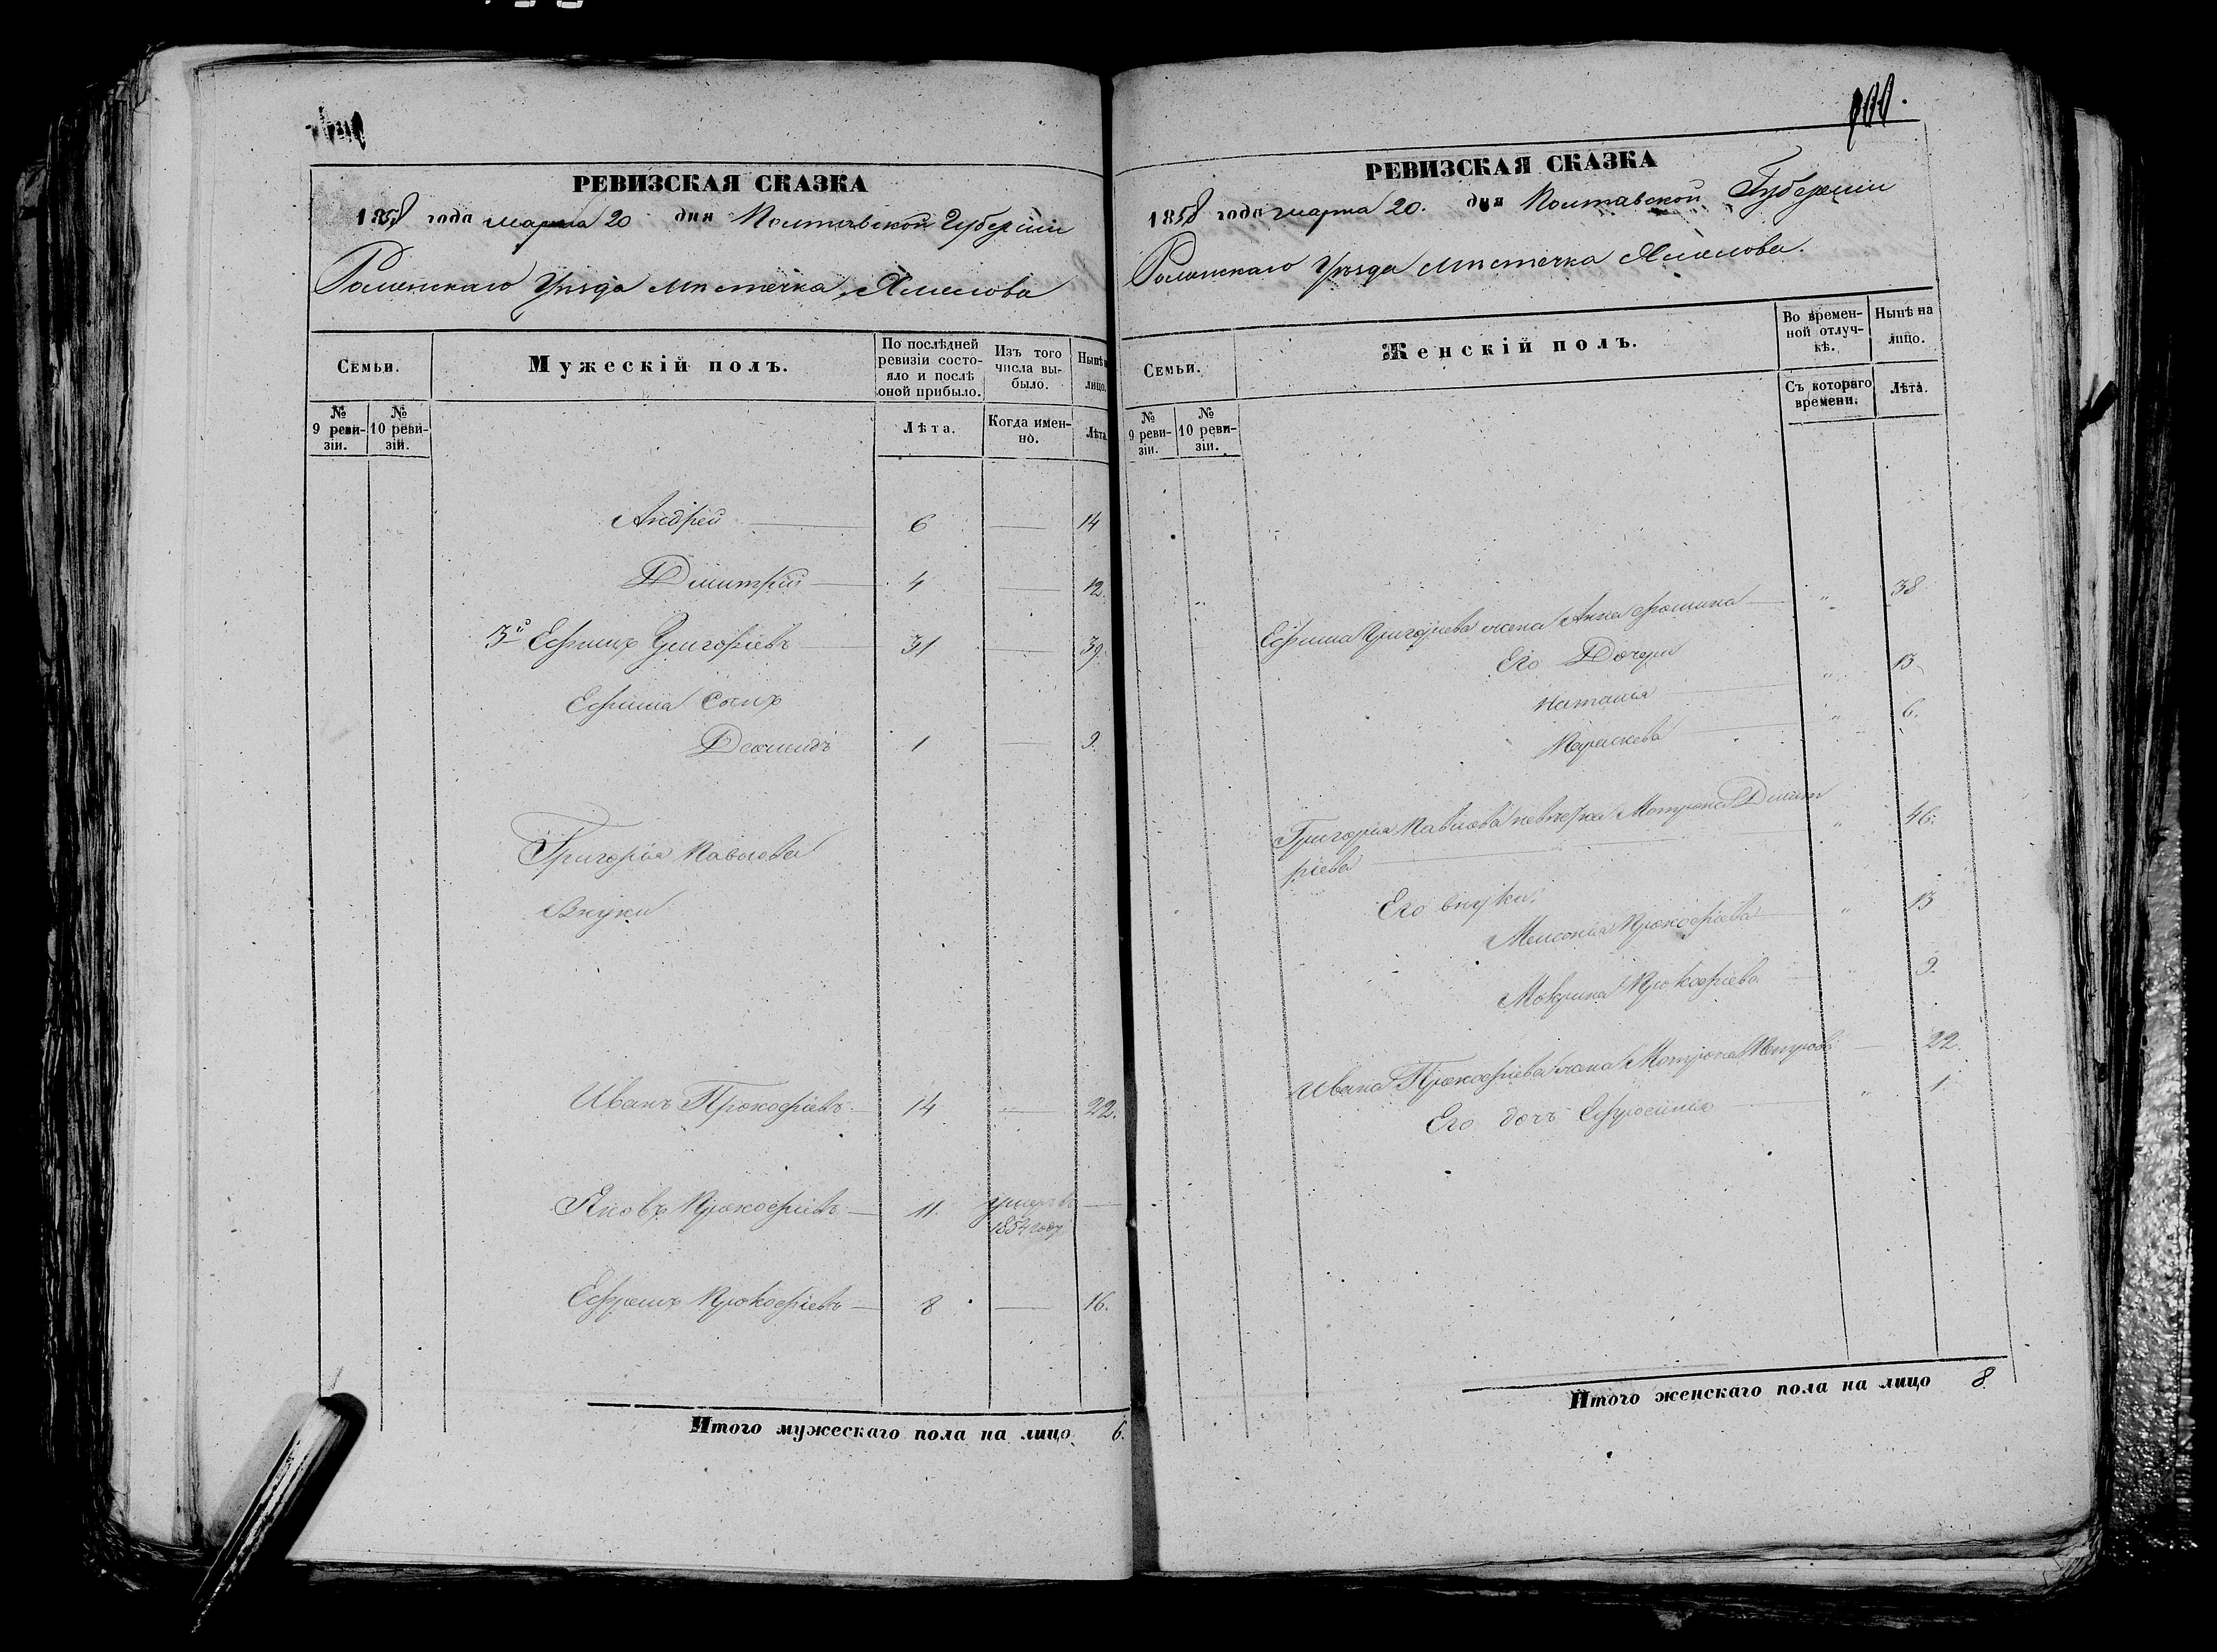 РЕВИЗСКАЯ СКАЗКА
1858 года марта 20 дня Полтавской Губерніи
Роменскаго Уѣзда мѣстечка Смелова
Семьи.
Мужескій полъ.
По послѣдней ревизіи состояло и послѣ оной прибыло.
Изъ того числа выбыло.
Нынѣ
лицо.
№ 9 ревизіи.
№ 10 ревизіи.
Лѣта.
Когда именно.
Лѣта
Андрей 6 14
Дмитрій 4 12.
3й Ефимъ Григорьевъ 31 39.
Ефима Сынъ
Деомидъ 1 9.
Григорія Павлова
Внуки
Иванъ Прокофіевъ 14 " 22.
Яковъ Прокофіевъ 11. умеръ въ
1854 году
Ефремъ Прокофіевъ 8 16.
Итого мужескаго пола на лицо 6.
РЕВИЗСКАЯ СКАЗКА
1858 года марта 20. дня Полтавской Губерніи
Роменскаго Уѣзда мѣстечка Смелова.
Семьи.
Женскій полъ.
Во временной отлучкѣ.
Нынѣ на лицо.
№ 9 ревизіи.
№ 10 ревизіи.
Съ котораго времени.
Лѣта.
Ефима Григорьева жена Анна Фомина " 38
Его Дочери
Наталія " 13
Параскева " 6.
Григорія Павлова невѣстка Мотрона Дмит
ріева " 46.
Его внуки.
Прокофіева " 13
Мокрина Прокофіева " 9.
Ивана Прокофіева жена Мотрона Петров: 22.
Его дочь Ефросинія " 1
Итого женскаго пола на лицо 8.